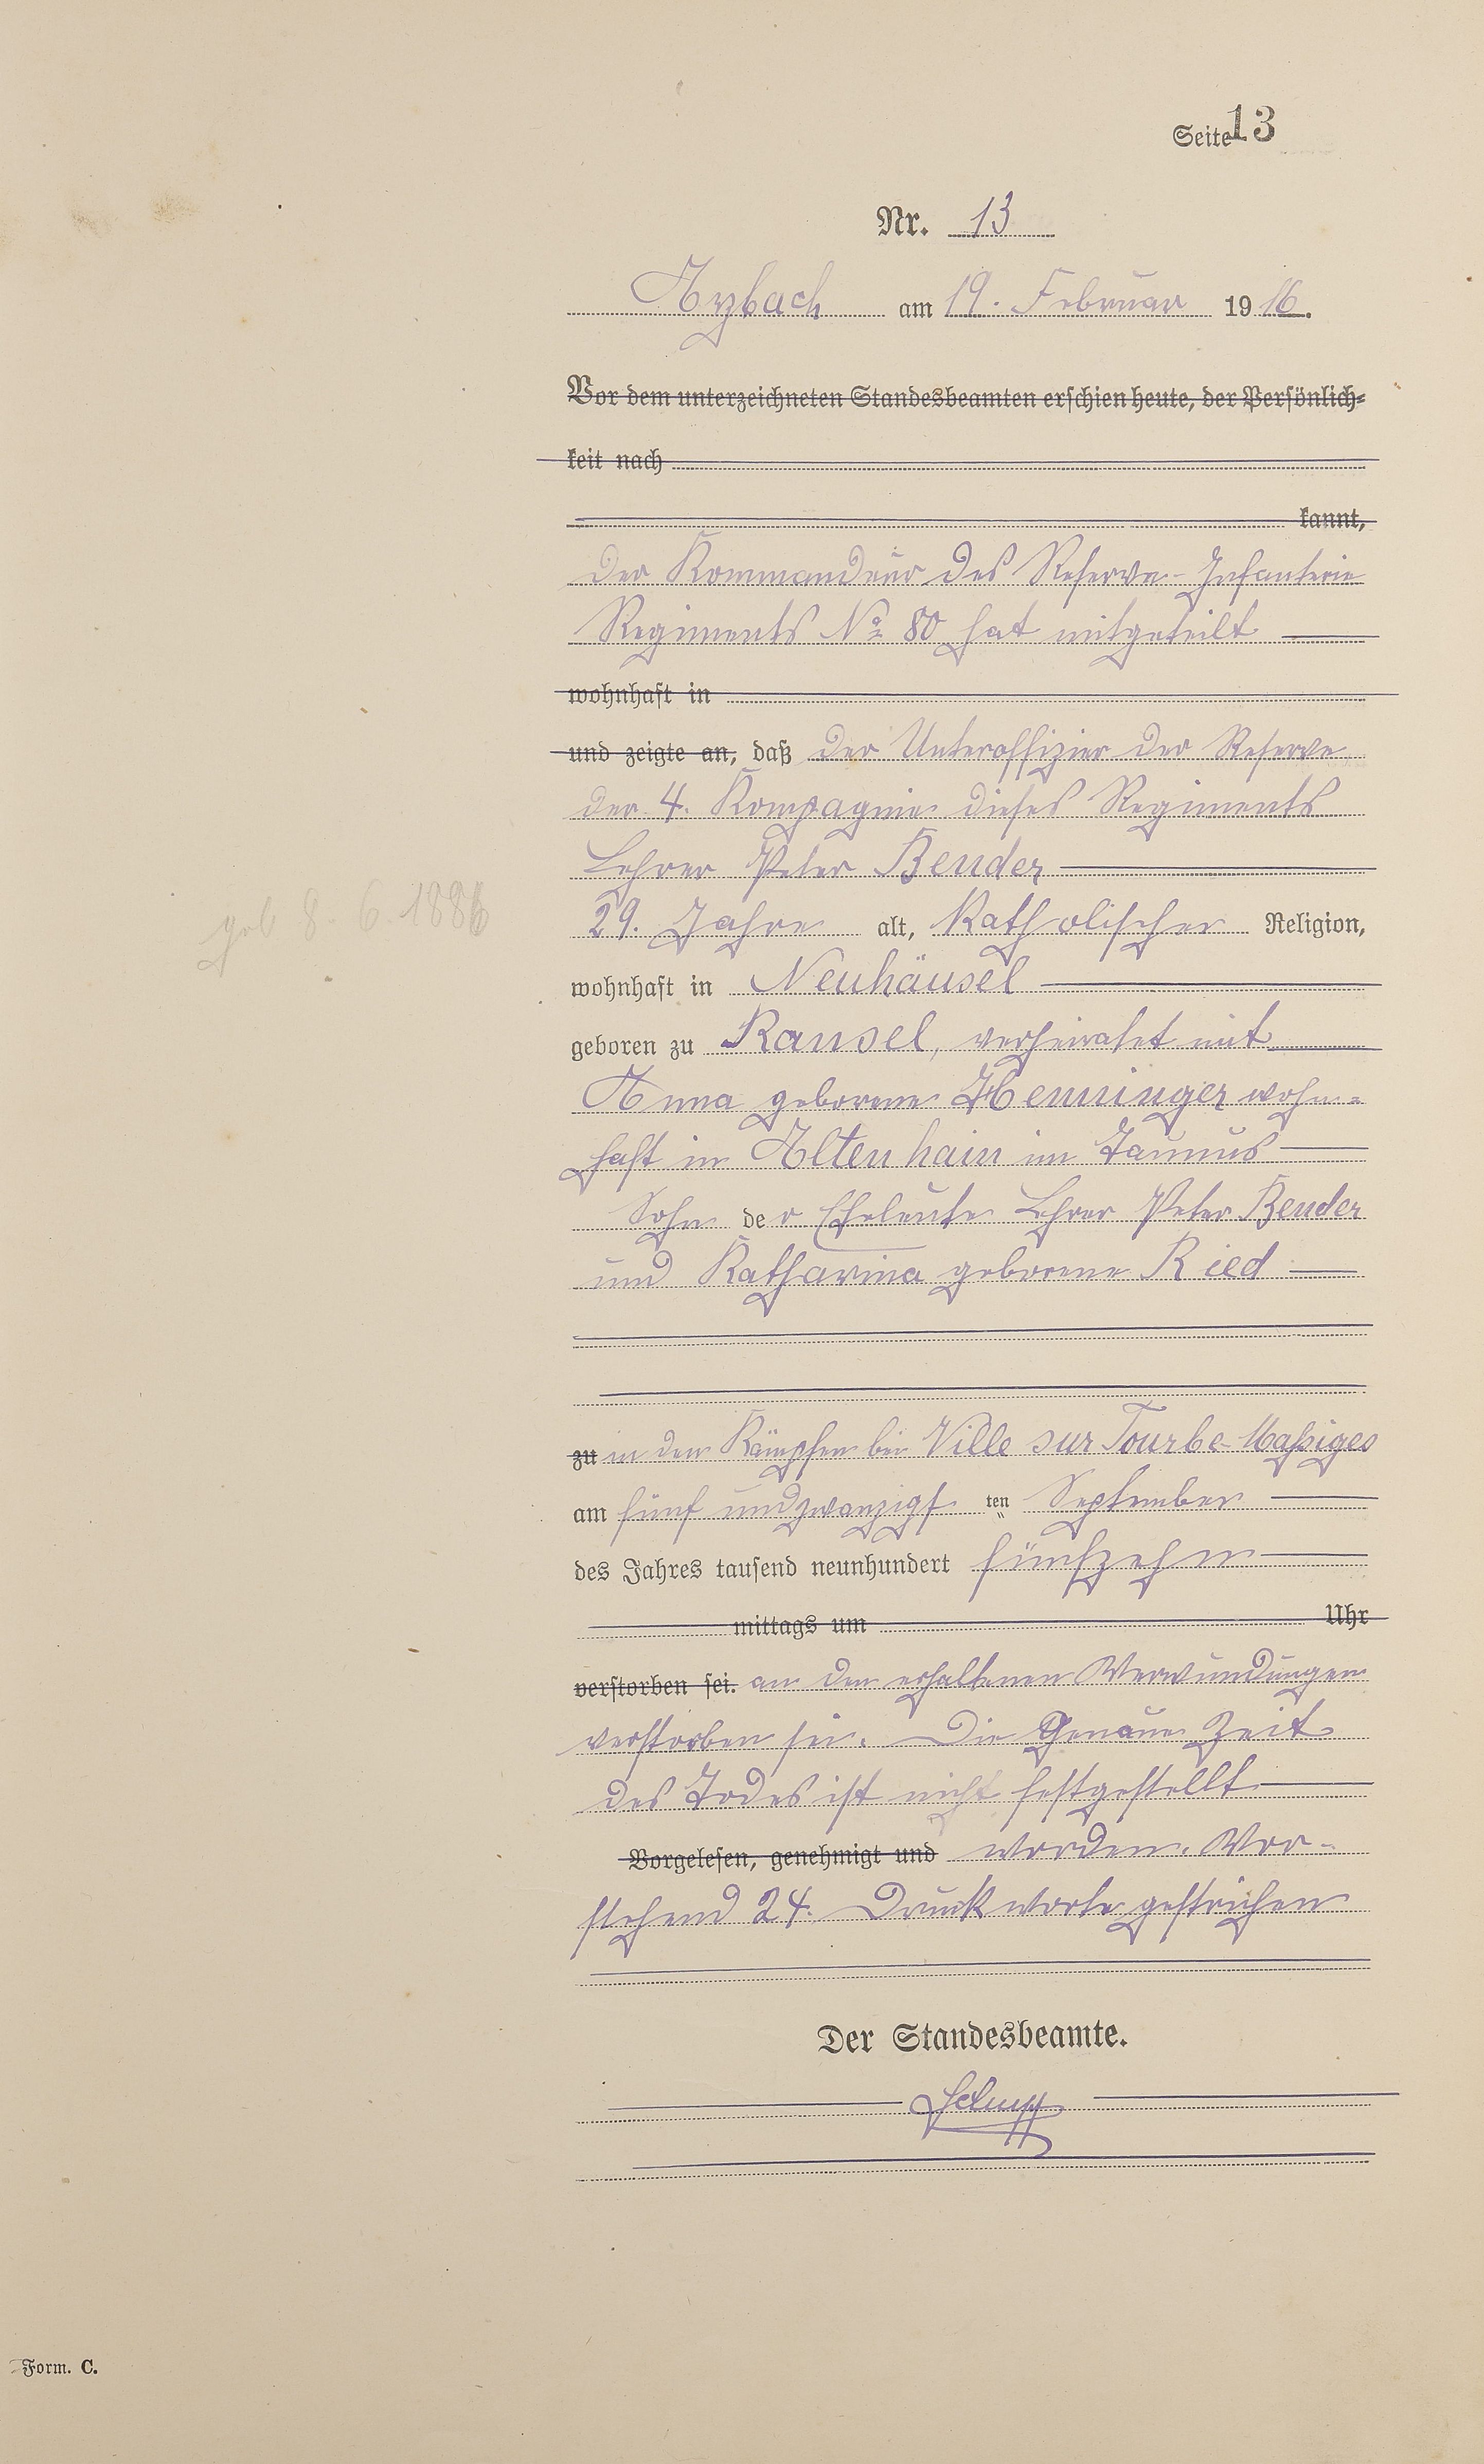 Seite 13
Nr. 13
Arzbach am 19. Februar 1916.
Vor dem unterzeichneten Standesbeamten erschien heute, der Persönlich-
keit nach
kannt,
der Kommandeur des Reserve-Infanterie
Regiments No 80 hat mitgeteilt
wohnhaft in
und zeigte an, daß der Unteroffizier der Reserve
der 4. Kompagnie dieses Regiments
Lehrer Peter Bender
geb 8. 6. 1886
29. Jahre alt, Katholischer Religion,
wohnhaft in Neuhäusel
geboren zu Ransel, verheiratet mit
Anna geborene Henninger wohn-
haft in Altenhain im Taunus
Sohn der Eheleute Lehrer Peter Bender
und Katharina geborene Ried
zu in den Kämpfen bei Ville sur Tourbe-Massiges
am fünf und zwanzigsten September
des Jahres tausend neunhundert fünfzehn
mittags um Uhr
verstorben sei. an den erhaltenen Verwundungen
verstorben sei. Die Genaue Zeit
des Todes ist nicht festgestellt
Vorgelesen, genehmigt und worden. Vor-
stehend 24. Druckworte gestrichen
Der Standesbeamte.
Form. C.